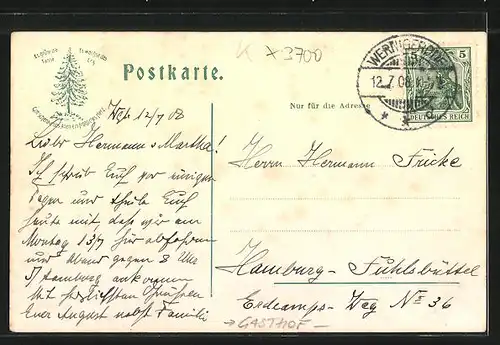 K x 3700
WERNIGERODE
12.7.08
5
DEUTSCHES REICH
Postkarte.
Nur für die Adresse
Wgb 12/7 08
Liebr Hermann u Martha!
Ich schrieb Euch vor einigen
Tagen und theile Euch
heute mit, dass wir am
Montag 13/7 hier abfahren
und Abend gegen 8 Uhr
Hamburg ankommen
Mit herzlichsten Grüssen
Euer August nebst Familie
Herrn Hermann Fricke
Hamburg-Fuhlsbüttel
Erdcamps-Weg No 36
→ GASTHOF –